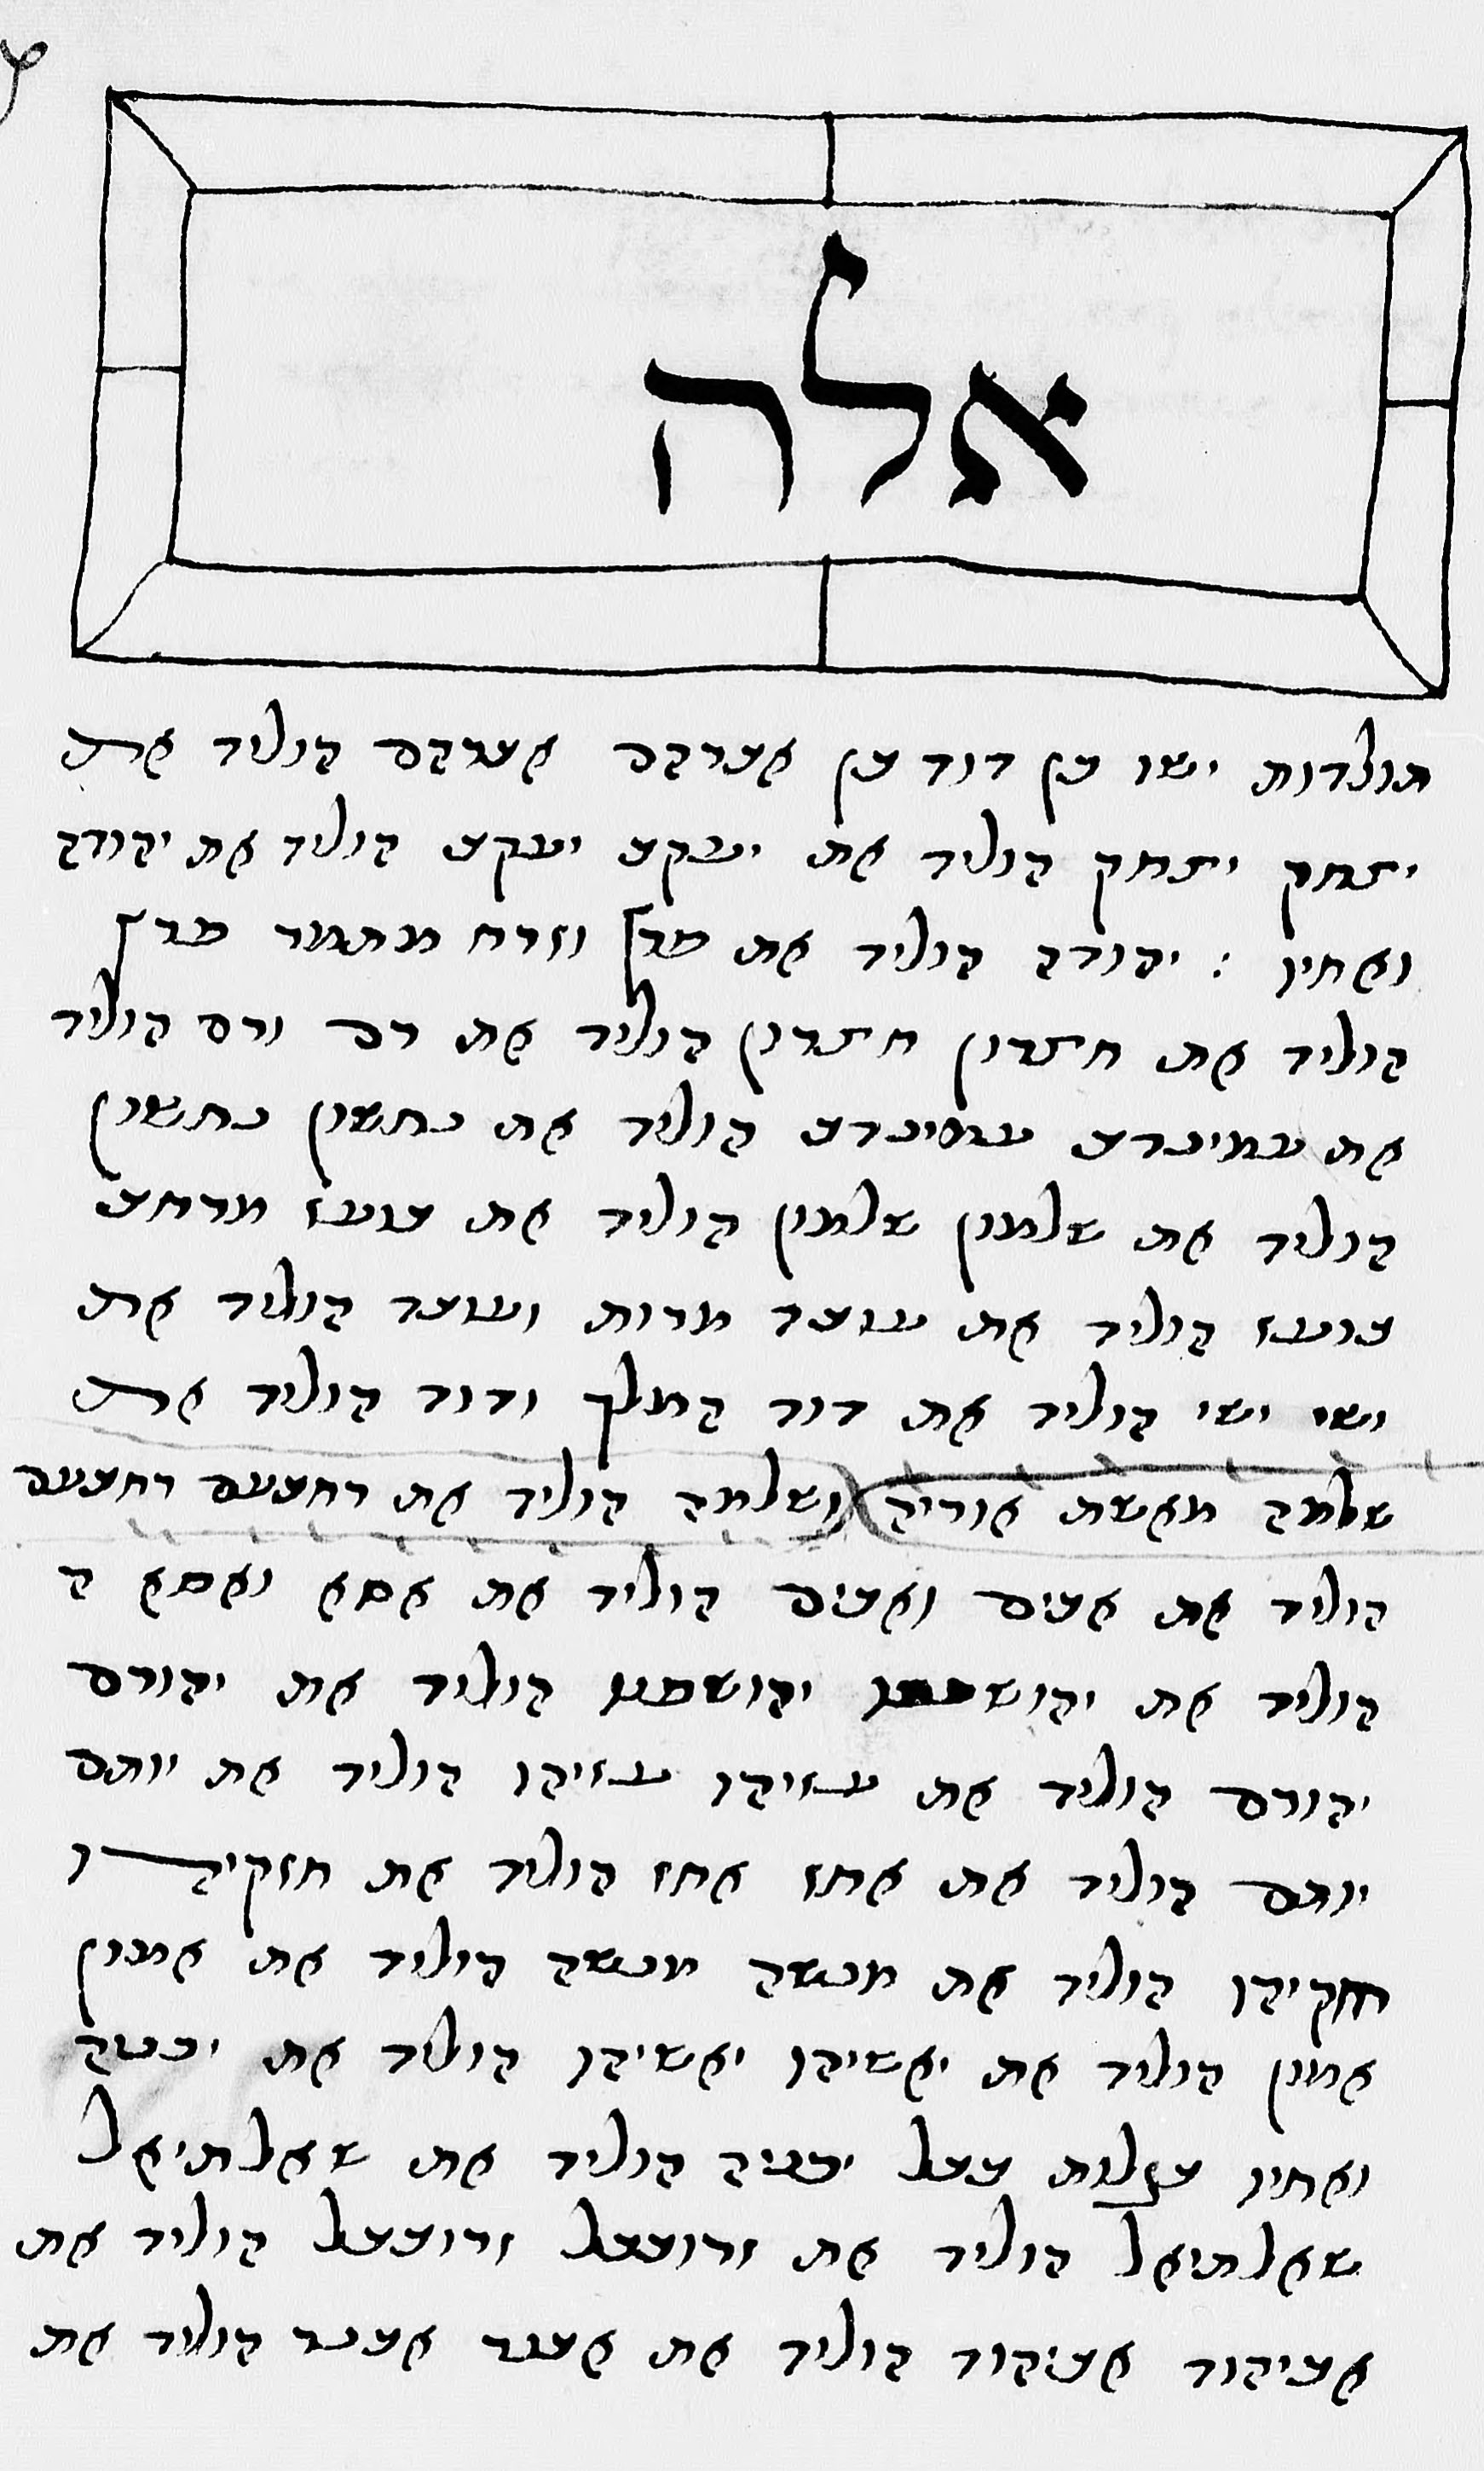 אלה
תולדות ישו בן דוד בן אברהם אברהם הוליד את
יצחק יצחק הוליד את יעקב יעקב הוליד את יהודה
ואחיו : יהודה הוליד את פרץ וזרח מתמר פרץ
הוליד את חצרון חצרון הוליד את רם ורם הוליד
את עמינדב עמינדב הוליד את נחשון נחשון
הוליד את שלמון שלמון הוליד את בועז מרחב
בועז הוליד את עובד מרות ועובד הוליד את
ישי ישי הוליד את דוד המלך ודוד הוליד את
שלמה מאשת אוריה ושלמה הוליד את רחבעם רחבעם
הוליד את אבים ואבים הוליד את אסא ואסא ה
הוליד את יהושפט יהושפט הוליד את יהורם
יהורם הוליד את עזיהו עזיהו הוליד את יותם
יותם הוליד את אחז אחז הוליד את חזקיהו
חזקיהו הוליד את מנשה מנשה הוליד את אמון
אמון הוליד את יאשיהו יאשיהו הוליד את יכניה
ואחיו בגלות בבל יכניה הוליד את שאלתיאל
שאלתיאל הוליד את זרובבל זרובבל הוליד את
אביהוד אביהוד הוליד את אבנר אבנר הוליד את